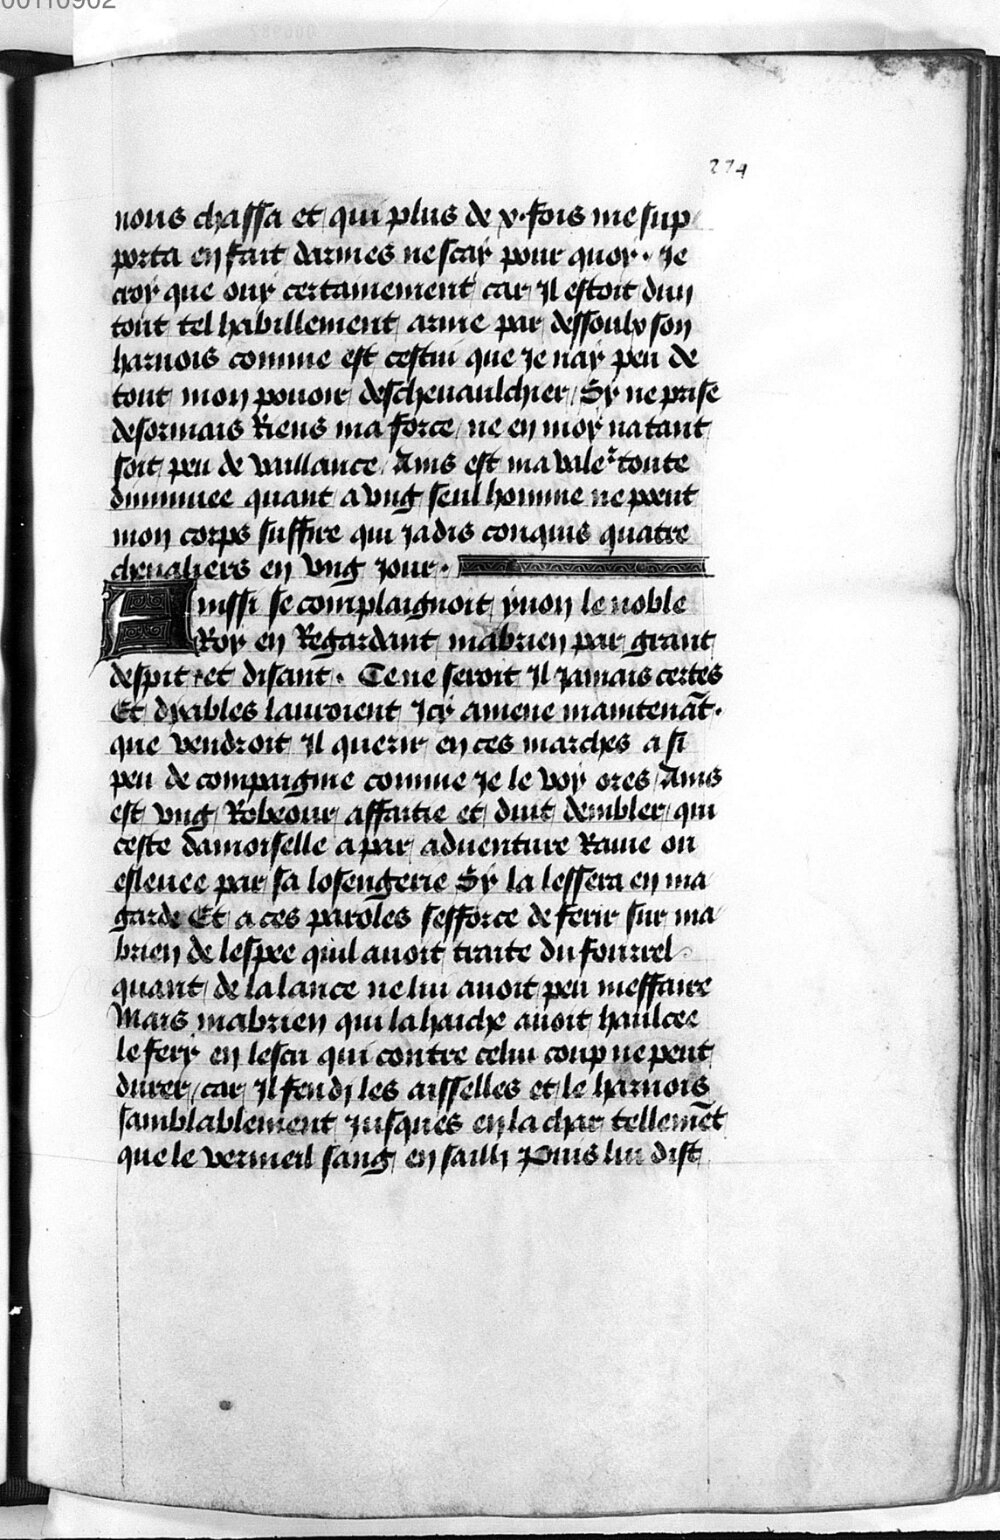 00110902
274
nous chassa et qui plus de x. fois me sup
porta en fait darmes ne scay pour quoy . Je
croy que ouy certainement car Il estoit dun
tout tel habillement arme par dessoulx son
harnois comme est cestui que Je nay peu de
tout mon pouoir descheuaulchier / Sy ne prise
desormais Riens ma force / ne en moy na tant
soit peu de vaillance / Ains est ma valer toute
diminuee quant a vng seul homme ne peeut
mon corps suffire qui Jadis conquis quatre
cheualiers en vng Jour .
Ainssi se complaignoit yuon le noble
Roy en Regardant mabrien par grant
despit et disant . Ce ne seroit Il Jamais certes
Et dyables lauroient Icy amene maintenāt .
que vendroit Il querir en ces marches a si
peu de compaignie comme Je le voy ores / Ains
est vng Robeour affaitie et duit dembler / qui
ceste damoiselle a par aduenture Rauie ou
esleuee par sa losengerie Sy la lessera en ma
garde Et a ces paroles sefforce de ferir sur ma
brien de lespee quil auoit traite du fourrel
quant de la lance ne lui auoit peu meffaire
Mais mabrien qui la haiche auoit haulcee
le fery en lescu qui contre celui coup ne peut
durer / car Il fendj les aisselles et le harnois
samblablement Jusques en la char tellemēt
que le vermeil sang en saillj Puis lui dist